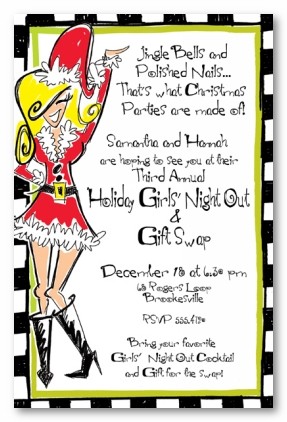 Jingle Bells and
Polished Nails...
That's what Christmas
Parties are made of!
Samantha and Hannah
are hoping to see you at their
Third Annual
Holiday Girls' Night Out
&
Gift Swap
December 18 at 6:30 pm
68 Rogers Loop
Brookesville
RSVP
Bring your favorite
Girls' Night Out Cocktail
and Gift for the swap!